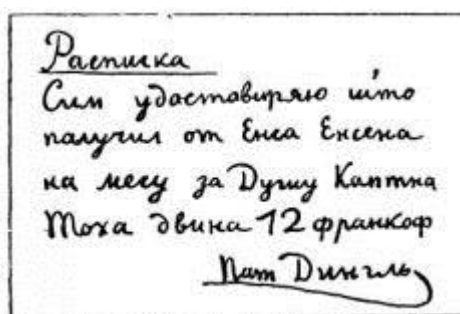 Расписка
Сим удостовиряю што
палучил от Енса Енсена
на месу за Душу Каптна
Тоха двина 12 франкоф
Пат Дингль